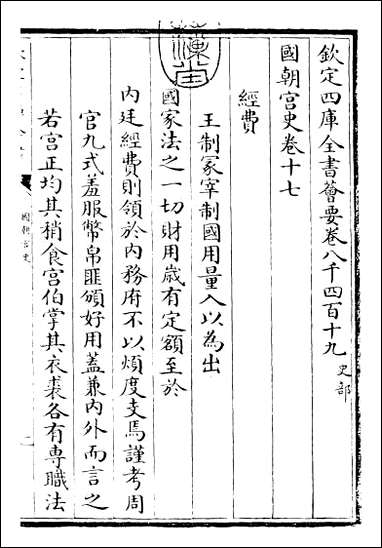 欽定四庫全書薈要卷八千四百十九 史部
國朝宮史卷十七
經費
王制冡宰制國用量入以為出
國家法之一切財用歲有定額至於
內廷經費則領於內務府不以煩度支焉謹考周
官九式羞服幣帛匪頒好用蓋兼內外而言之
若宮正均其稍食宮伯掌其衣裘各有專職法
國朝宮史